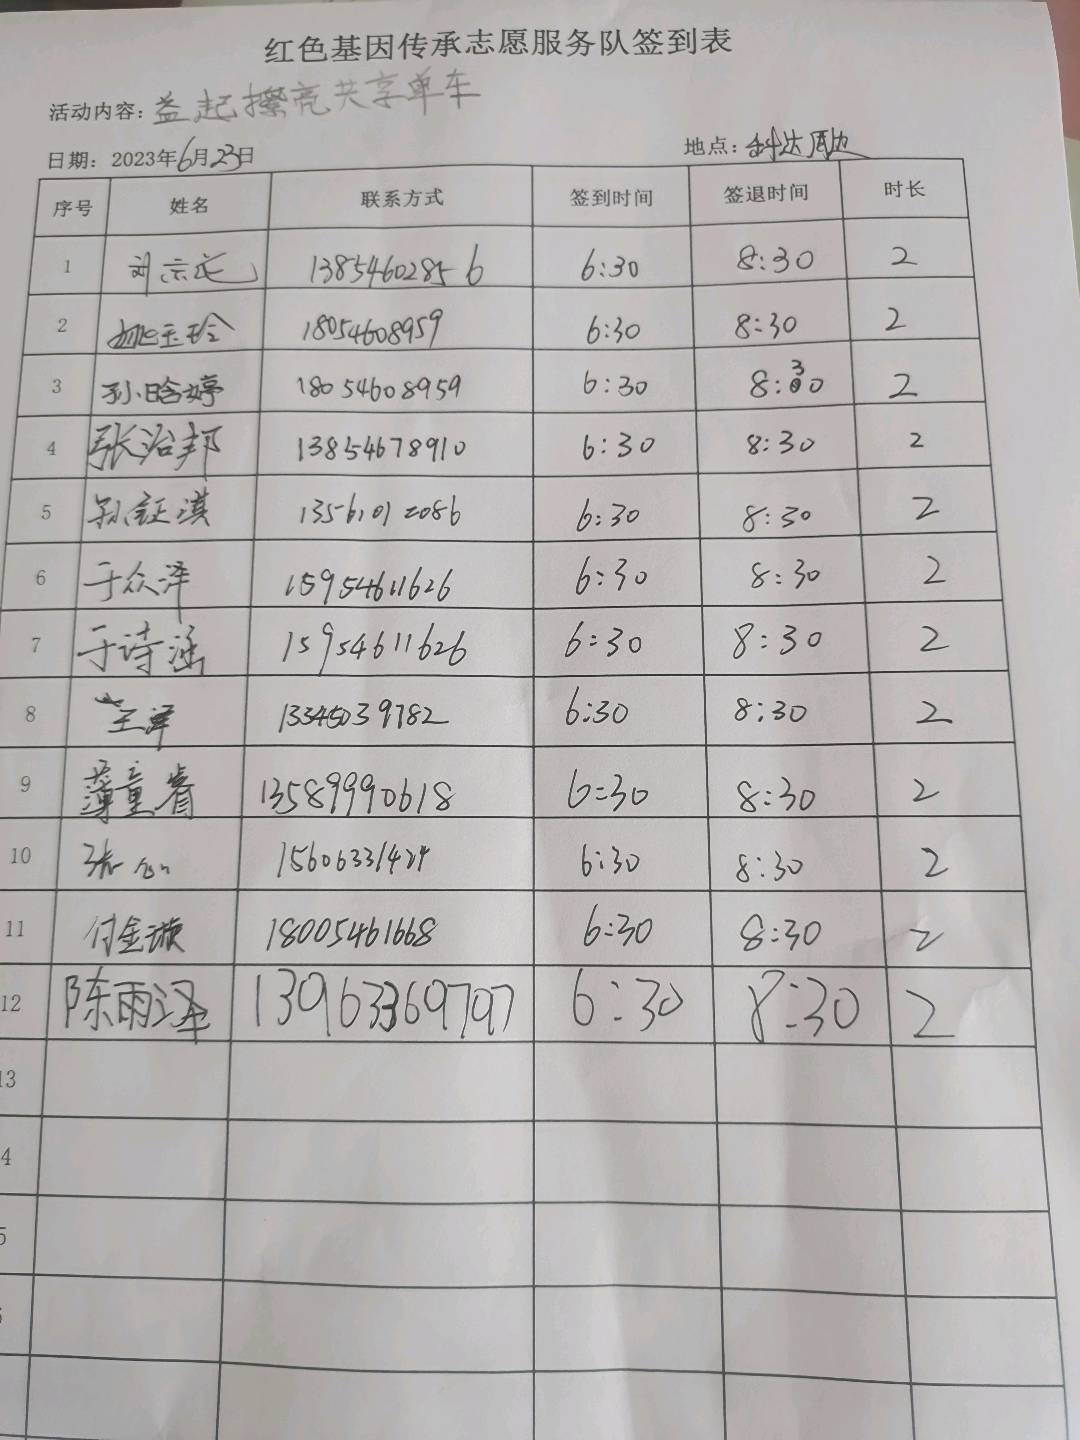 红色基因传承志愿服务队签到表
活动内容：益起擦亮共享单车
日期：2023年6月23日 地点：科达周边
序号 姓名 联系方式 签到时间 签退时间 时长
1 13854602856 6:30 8:30 2
2 姚玉玲 18054608959 6:30 8:30 2
3 孙晗婷 18054608959 6:30 8:30 2
4 张治邦 13854678910 6:30 8:30 2
5 孙钰淇 13561012086 6:30 8:30 2
6 于众泽 15954611626 6:30 8:30 2
7 于诗涵 15954611626 6:30 8:30 2
8 13345039782 6:30 8:30 2
9 薄童睿 13589990618 6:30 8:30 2
10 15606331424 6:30 8:30 2
11 付金璇 18005461668 6:30 8:30 2
12 陈雨泽 13963369797 6:30 8:30 2
13
4
5